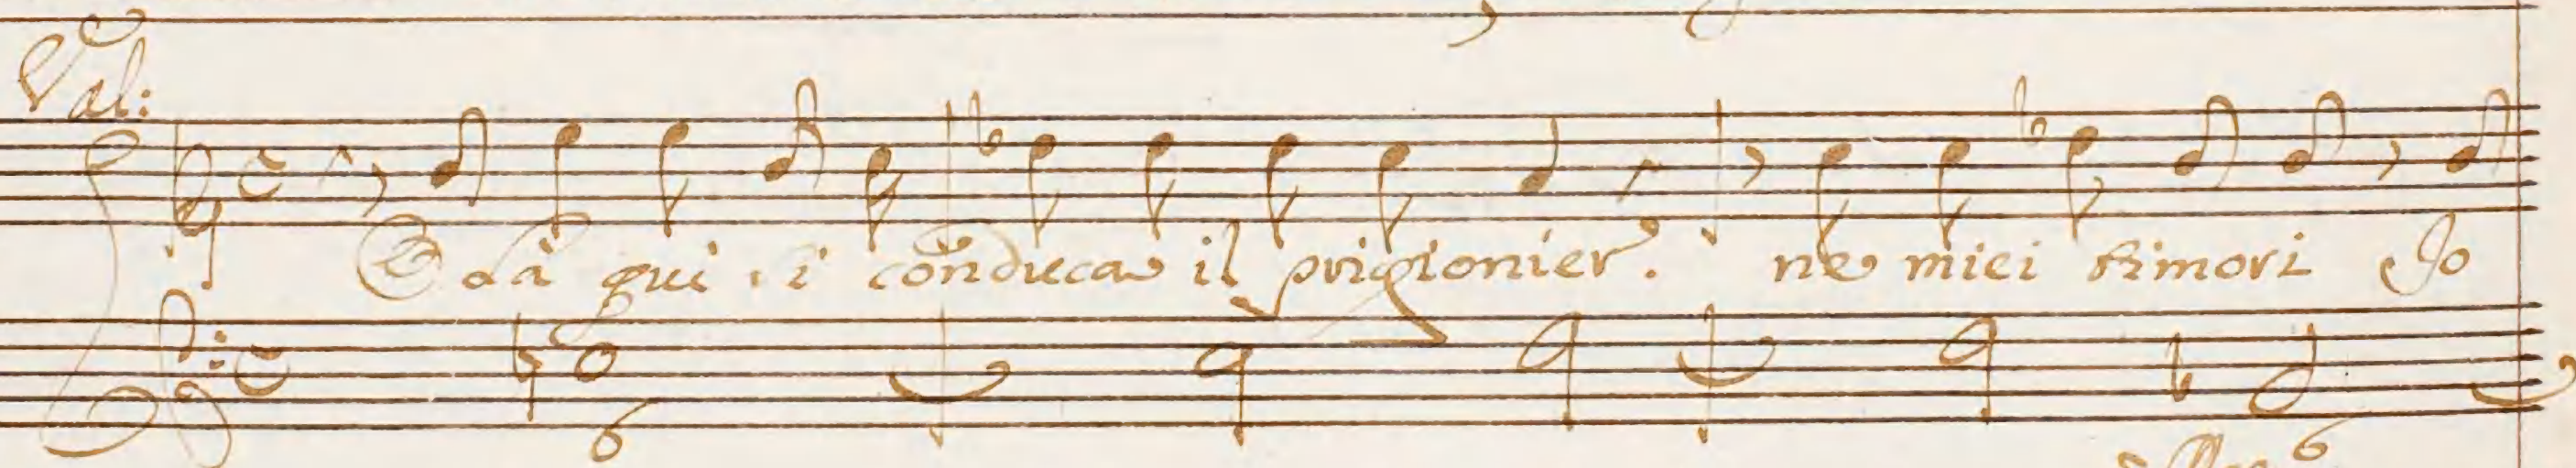 Val:
Olà qui si conduca il prigionier. ne miei timori Io
6 6